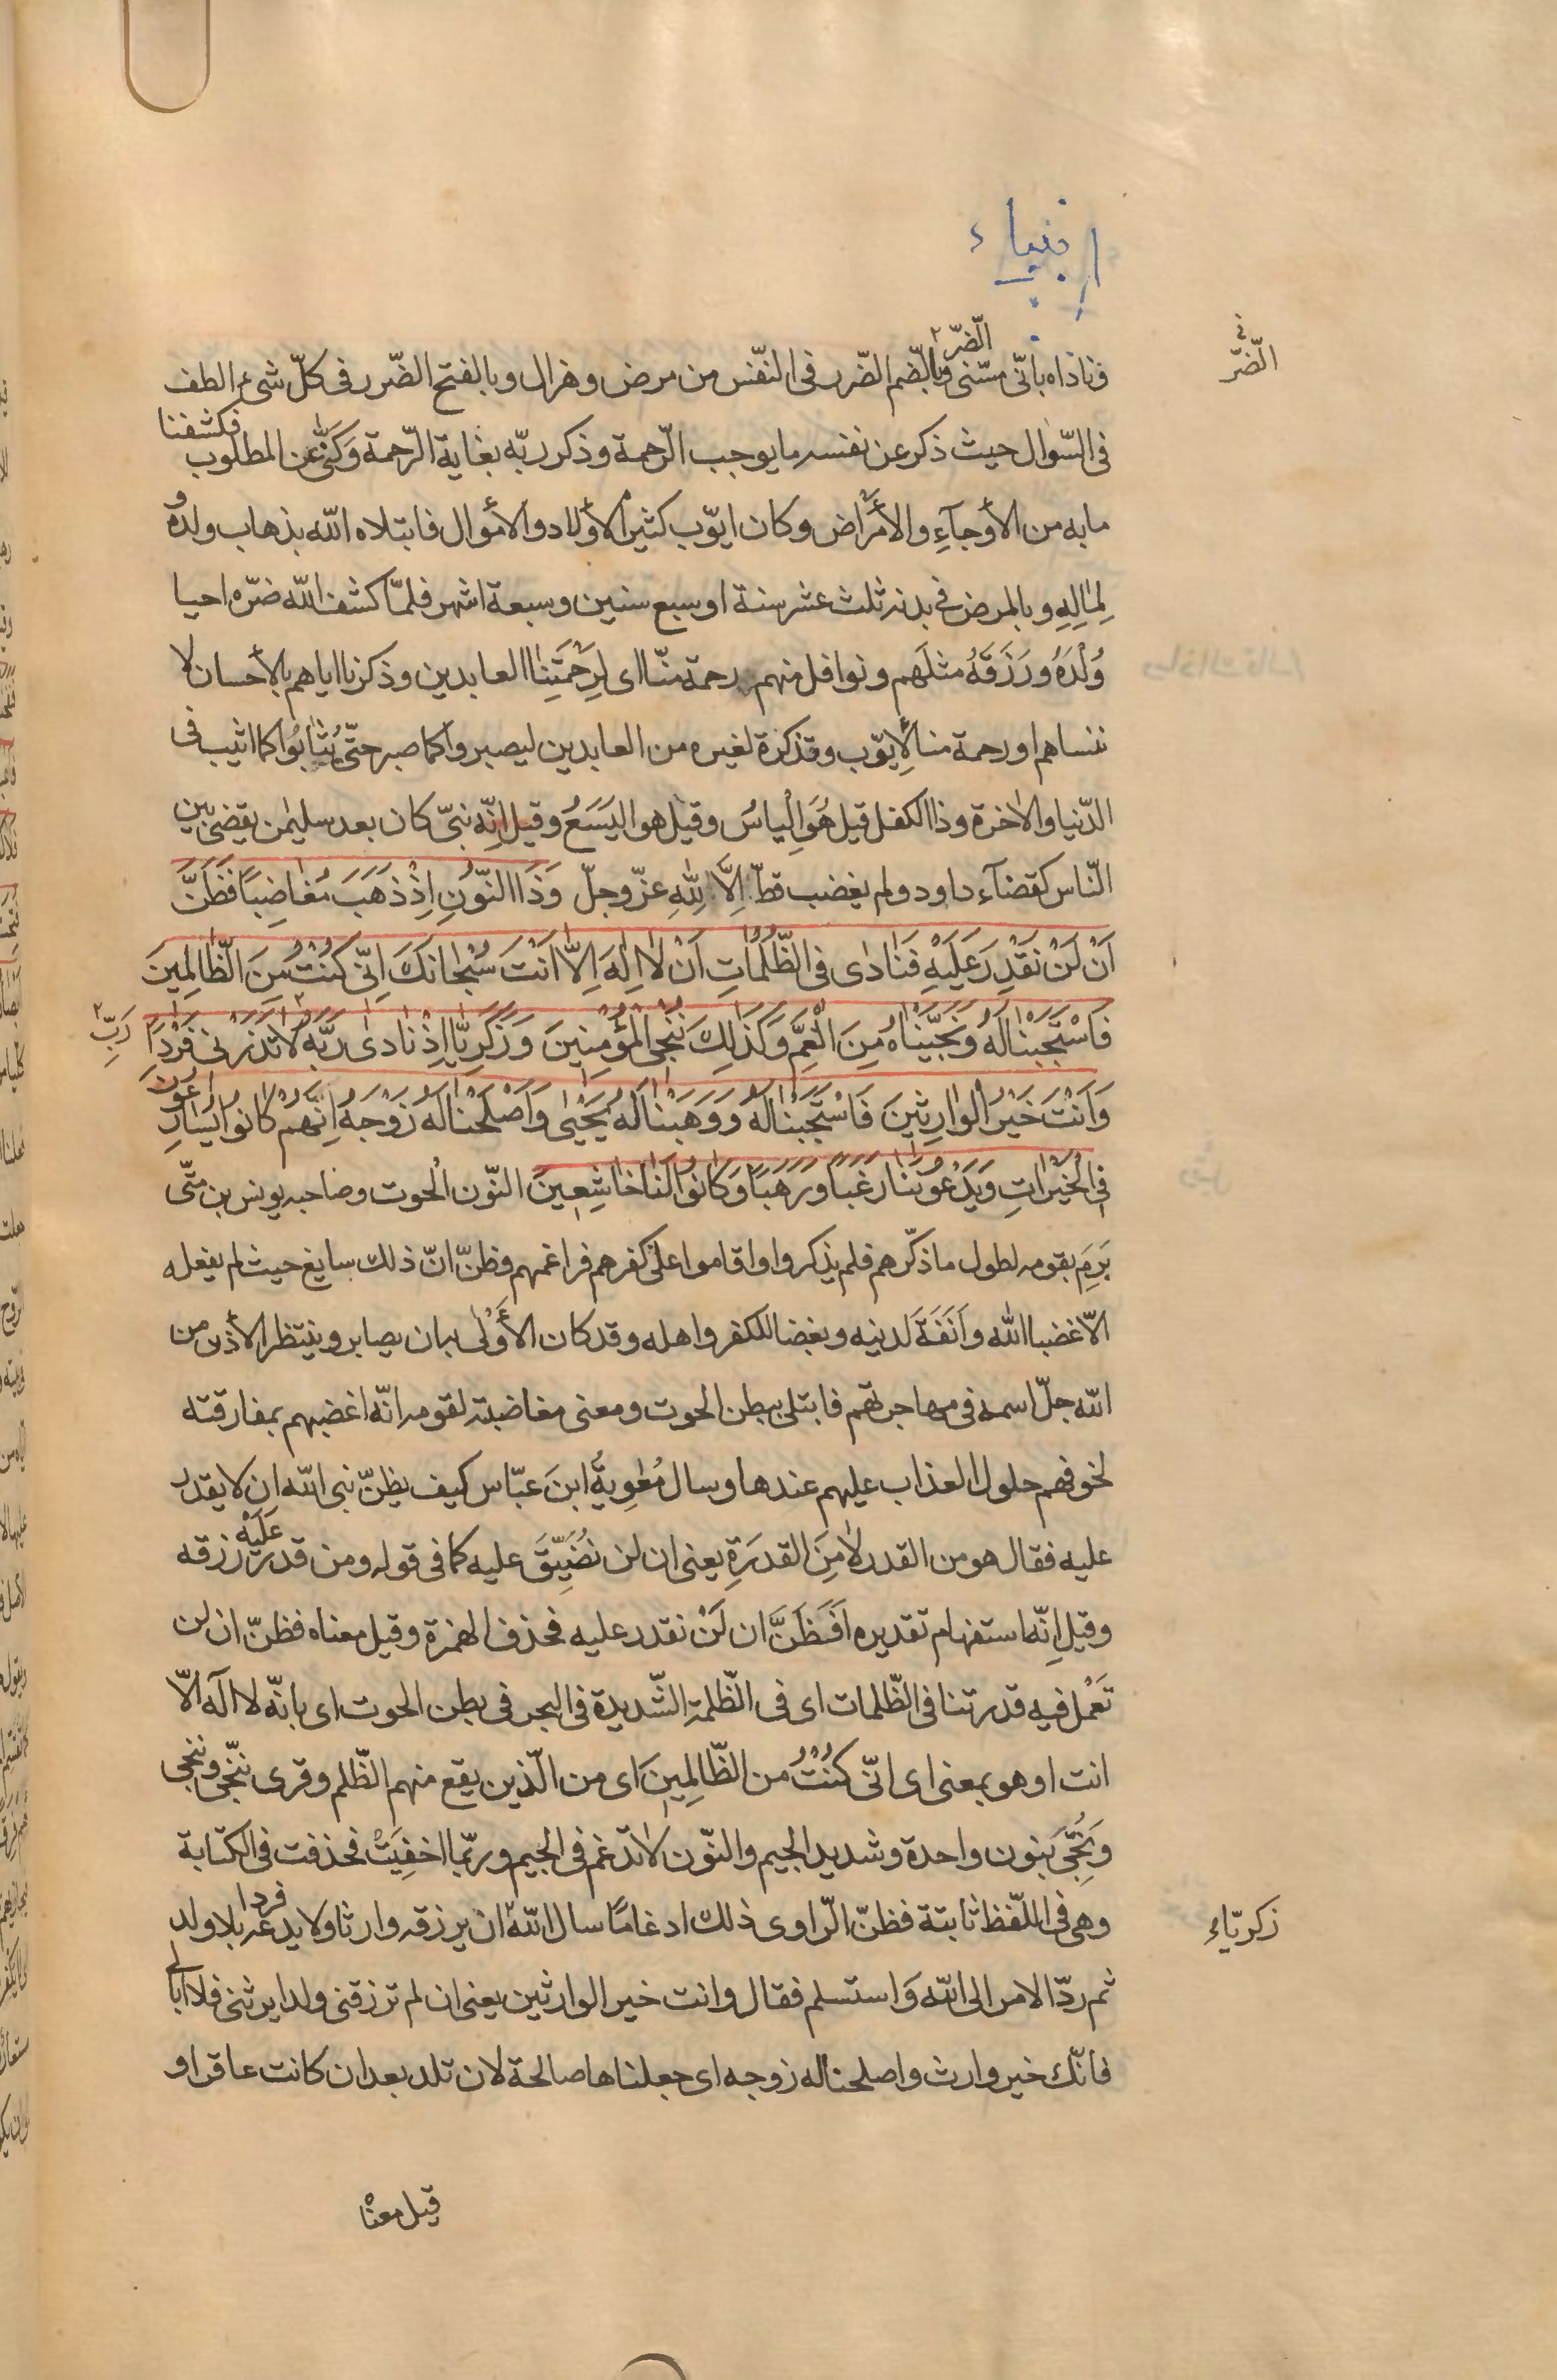 انبياء
فناداه بانّى مسّنى الضّرّ وبالضّم الضّرر فى النّفس من مرض وهزال وبالفتح الضّرر فى كلّ شىء الطف
فى السّؤال حيث ذكر عن نفسه ما يوجب الرّحمة وذكر ربّه بغاية الرّحمة وَكَنّى عن المطلوب فكشفنا
ما به من الأوجاءِ والأمْراض وكان ايّوب كثير الأولاد والأموال فابتلاه اللّه بذهاب ولده و
لِمٰالِهِ وبالمرض فى بدنه ثلث عشر سنة او سبع سنين وسبعة اشهر فلمّا كشف اللّه ضرّه احيا
وُلْدَهُ ورَزَقَهُ مثلَهم ونوافل منهم رحمة منّا اى لِرَحْمَتِنٰا العابدين وذكرنا اياهم بالأحسان لا
ننساهم او رحمة منا لِأيّوب وتذكرة لغيره من العابدين ليصبروا كما صبر حتّى يُثٰابُوا كما اثيب فى
الدّنيا والاخرة وذا الكفل قيل هُوَ اِلْياسُ وقيل هو اليَسَعُ وقيل انّه نبىّ كان بعد سليمٰن يقضى بين
النّاس كقضآء داود ولم يغضب قطّ اِلَّا لِلّٰهِ عزّ وجلّ وَذَا النّونِ اِذْ ذَهَبَ مُغٰاضِبًا فَظَنَّ
اَنْ لَنْ نَقْدِرَ عَلَيْهِ فَنٰادٰى فى الظُّلُمٰاتِ اَنْ لٰا اِلٰهَ اِلّٰا اَنْتَ سُبْحٰانَكَ اِنّى كُنْتُ مِنَ الظّٰالِمِينَ
فَاسْتَجَبْنٰا لَهُ وَنَجَّيْنٰاهُ مِنَ الْغَمِّ وَكَذٰلِكَ نُنْجِى المُؤْمِنينَ وَزَكَرِيّٰا اِذْ نٰادٰى رَبَّهُ رَبِّ لٰا تَذَرْنى فَرْدًا
وَاَنْتَ خَيْرُ الْوٰارِثِينَ فَاسْتَجَبْنٰا لَهُ وَوَهَبْنٰا لَهُ يَحْيٰى وَاَصْلَحْنٰا لَهُ زَوْجَهُ اِنَّهُمْ كٰانُوا يُسٰارِعُونَ
فى الْخَيْرٰاتِ وَيَدْعُونَنٰا رَغَبًا وَرَهَبًا وَكٰانُوا لَنٰا خٰاشِعِينَ النّون الحوت وصاحبه يونس بن متّى
بَرِمَ بقومه لطول ما ذكّرهم فلم يذكروا واقاموا على كفرهم فراغمهم فظنّ انّ ذلك سايغ حيث لم يفعله
الّا غضبا اللّه واَنَفَةَ لدنيه وبغضا للكفر واهله وقد كان الأَوْلٰى بان يصابر وينتظر الأذن من
اللّه جلّ اسمه فى مهاجرتهم فابتلى ببطن الحوت ومعنى مغاضبته لقومه انّه اغضبهم بمفارقته
لخوفهم حلول العذاب عليهم عندها وسال مُعٰوِيةُ ابنَ عبّاس كيف يظنّ نبى اللّه ان لا يقدر
عليه فقال هو من القدر لٰا مِنَ القدرَةِ يعنى ان لن نُضَيِّقَ عليه كما فى قوله ومن قدر عَلَيْهِ رزقه
وقيل اِنّه استفهام تقديره اَفَظَنَّ ان لَنْ نقدر عليه فحذف الهمزة وقيل معناه فظنّ ان لن
تَعْمل فيه قدرتنا فى الظّلمات اى فى الظّلمة الشّديدة فى البحر فى بطن الحوت اى بانّه لا اله الّا
انت او هو بمعنى اى انّى كُنْتُ من الظّالِمِينَ اى من الّذين يقع منهم الظّلم وقرى ننّجى وننجى
ونُجّىَ بنون واحدة وشديد الجيم والنّون لاتدغم فى الجيم وربّما اخفِيَتْ فحذفت فى الكتابة
وهى فى اللّفظ ثابتة فظنّ الرّاوى ذلك ادغامًا سال اللّه ان يرزقه وارثا ولا يدعه فردا بلا ولد
ثم ردّ الامر الى اللّه وَاستسلم فقال وانت خير الوارثين يعنى ان لم ترزقنى ولدا يرثنى فلا ابالى
فانّك خير وارث واصلحنا له زوجه اى جعلناها صالحة لان تلد بعد ان كانت عاقرا و
قيل معنٰا
فى الضّرّ
زكريّاء